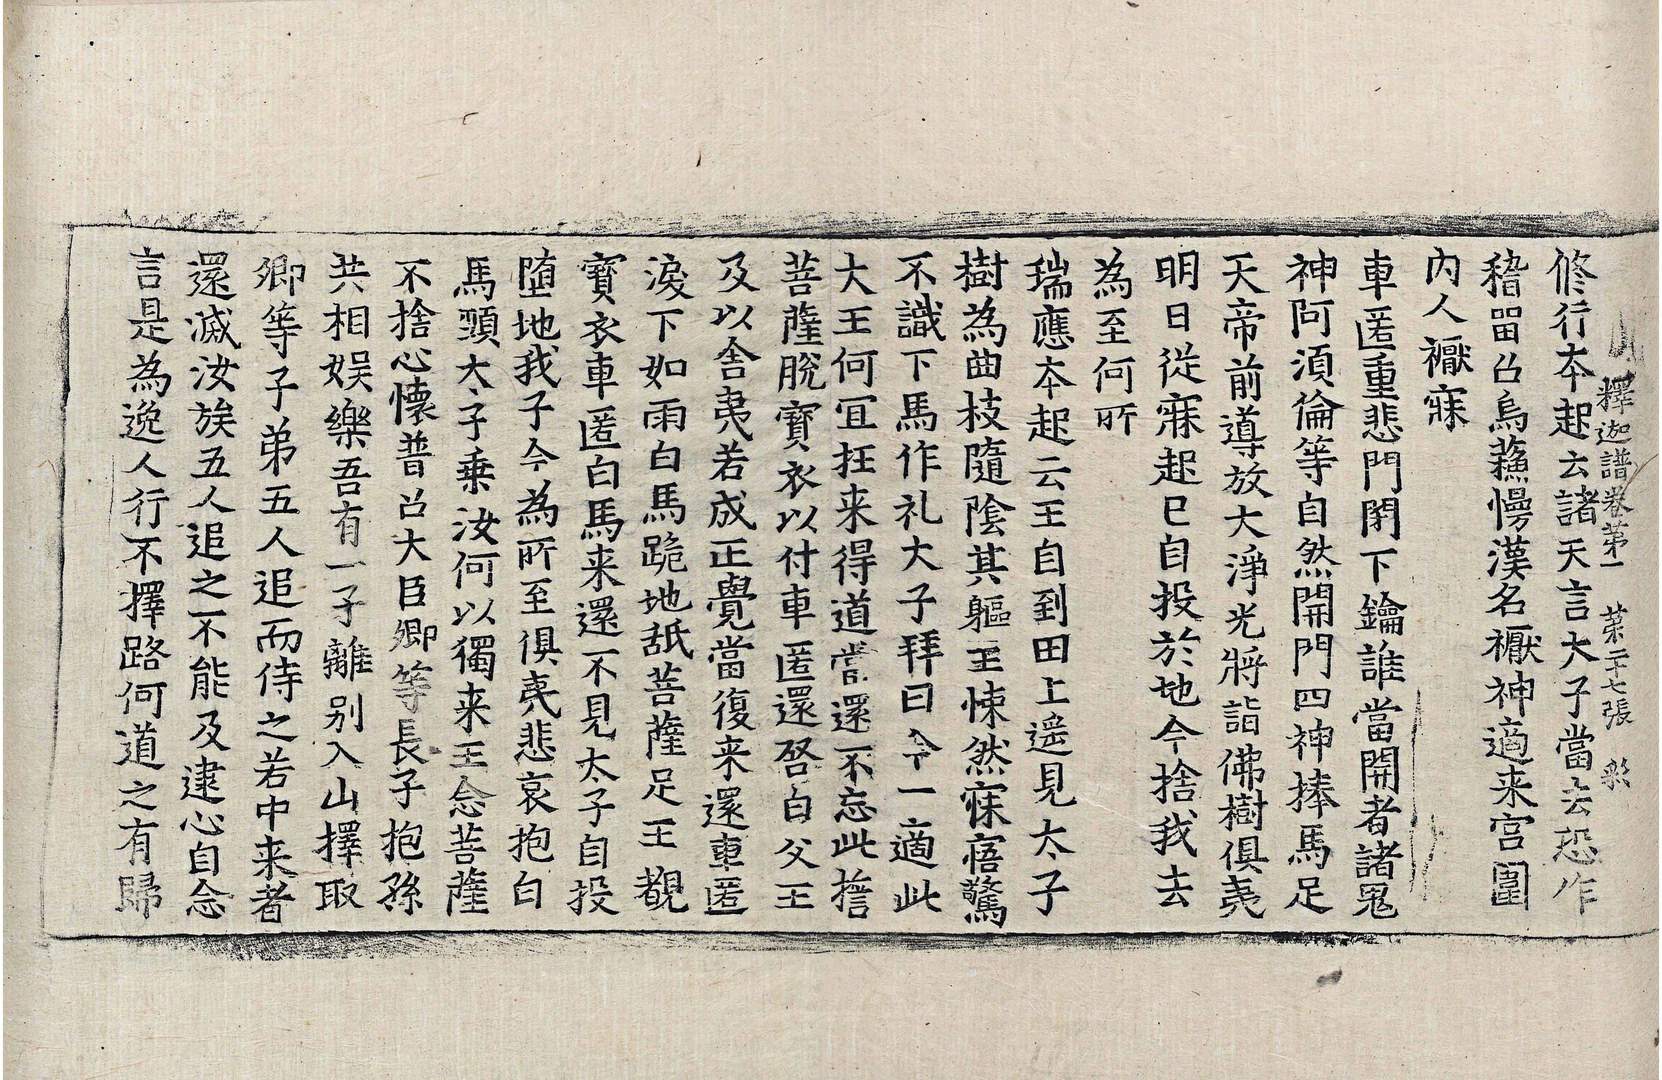 釋迦譜卷第一 第二十七張 彩
修行夲起云諸天言大子當去恐作
稽畱召烏蘓慢漢名𧞣神適来宫圍
内人𧞣寐
車匿重悲門閉下鑰誰當開者諸鬼
神阿須倫等自然開門四神捧馬足
天帝前導放大淨光將詣佛樹俱夷
明日從寐起已自投於地今捨我去
為至何所
瑞應夲起云王自到田上遥見太子
樹為曲枝隨陰其軀王悚然寐寤驚
不識下馬作礼大子拜曰今一適此
大王何冝抂来得道當還不忘此擔
菩薩脫寶衣以付車匿還啓白父王
及以舍夷若成正覺當復来還車匿
淚下如雨白馬跪地舐菩薩足王覩
寶衣車匿白馬来還不見太子自投
墮地我子今為所至俱夷悲哀抱白
馬頸太子乗汝何以獨来王念菩薩
不捨心懐普召大臣卿等長子抱孫
共相娱樂吾有一子離别入山擇取
卿等子弟五人追而侍之若中来者
還滅汝族五人追之不能及逮心自念
言是為逸人行不擇路何道之有歸